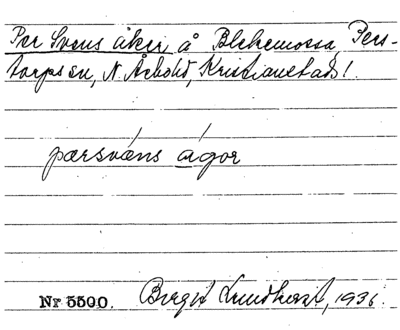 Per Svens åker å Blekemossa, Pers-
torps sn, N. Åsbohd, Kristianstads l.
pærsvæns ågor
Nr 5500. Birgit Lundkvist, 1936.